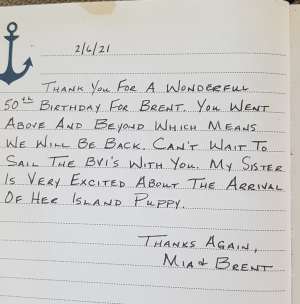 2/6/21
THANK YOU FOR A WONDERFUL
50th BIRTHDAY FOR BRENT. YOU WENT
ABOVE AND BEYOND WHICH MEANS
WE WILL BE BACK. CAN'T WAIT TO
SAIL THE BVI'S WITH YOU. MY SISTER
IS VERY EXCITED ABOUT THE ARRIVAL
OF HER ISLAND PUPPY.
THANKS AGAIN,
MIA & BRENT